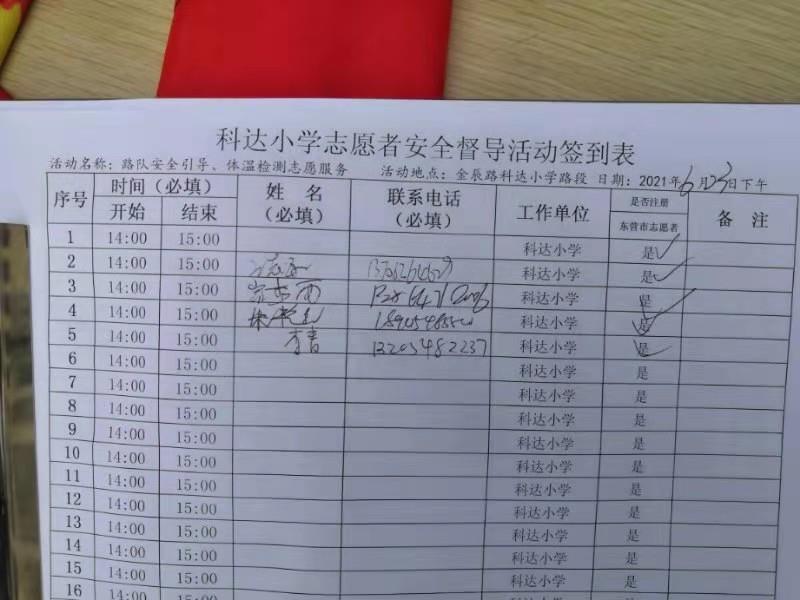 科达小学志愿者安全督导活动签到表
活动名称：路队安全引导、体温检测志愿服务 活动地点：金辰路科达小学路段 日期：2021年6月23日下午
序号 时间（必填） 姓名（必填） 联系电话（必填） 工作单位 是否注册东营市志愿者 备注
开始 结束
1 14:00 15:00 科达小学 是
2 14:00 15:00 科达小学 是
3 14:00 15:00 科达小学 是
4 14:00 15:00 科达小学 是
5 14:00 15:00 李青 13205482237 科达小学 是
6 14:00 15:00 科达小学 是
7 14:00 15:00 科达小学 是
8 14:00 15:00 科达小学 是
9 14:00 15:00 科达小学 是
10 14:00 15:00 科达小学 是
11 14:00 15:00 科达小学 是
12 14:00 15:00 科达小学 是
13 14:00 15:00 科达小学 是
14 14:00 15:00 科达小学 是
15 14:00 15:00 科达小学 是
16 14:00 15:00